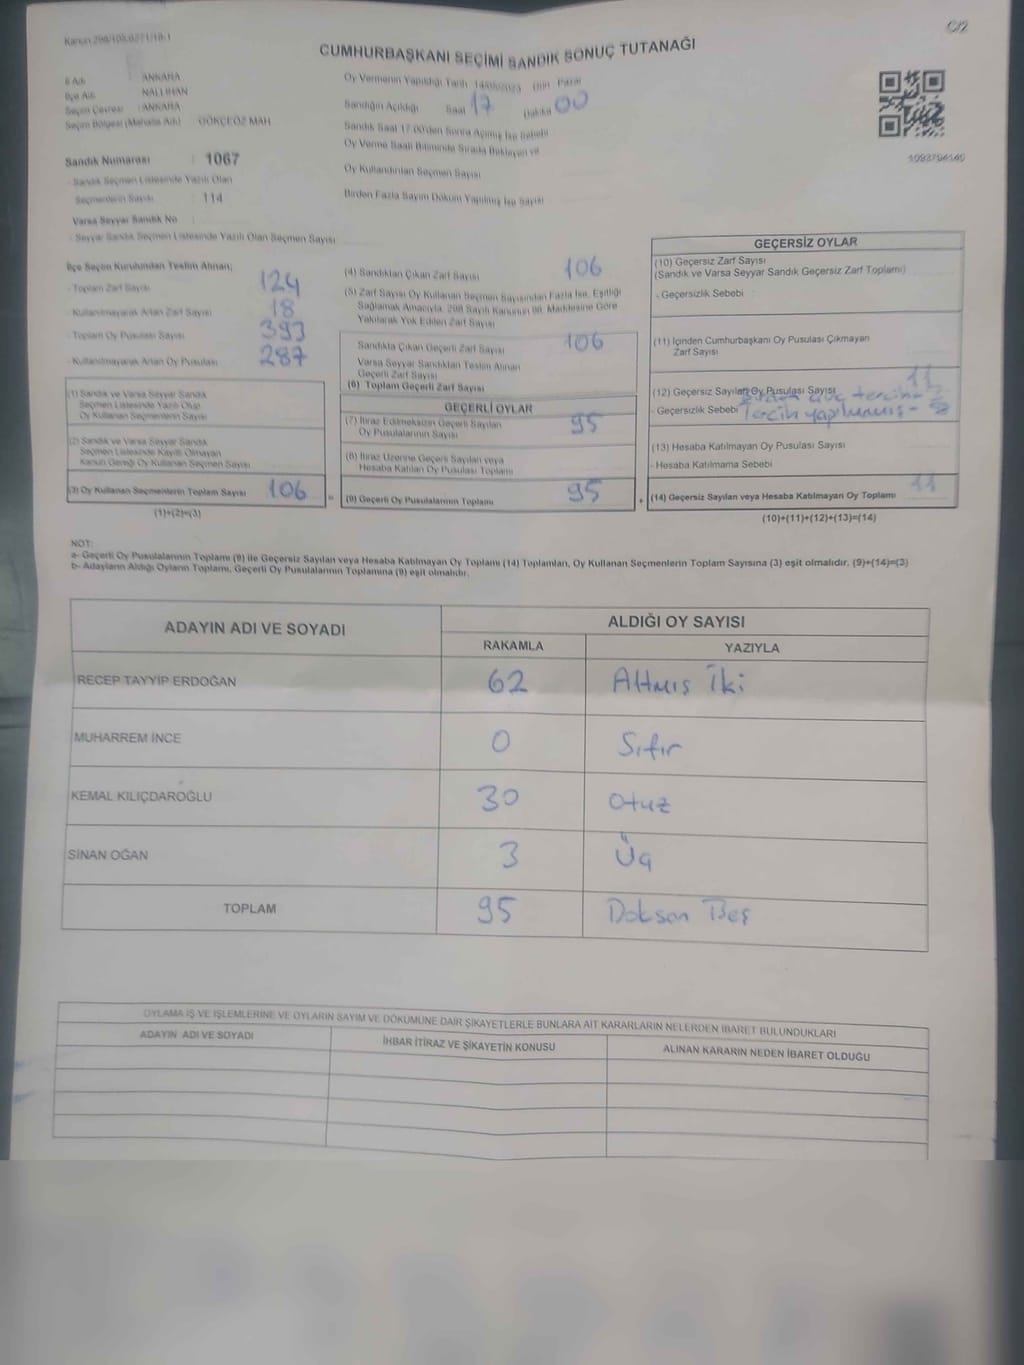 Kanun 298/103,627 1/19-1
C/2
CUMHURBAŞKANI SEÇİMİ SANDIK SONUÇ TUTANAĞI
İl Adı : ANKARA
İlçe Adı : NALLIHAN
Seçim Çevresi : ANKARA
Seçim Bölgesi (Mahalle Adı) : GÖKÇEÖZ MAH
Sandık Numarası : 1067
- Sandık Seçmen Listesinde Yazılı Olan
Seçmenlerin Sayısı : 114
Varsa Seyyar Sandık No :
- Seyyar Sandık Seçmen Listesinde Yazılı Olan Seçmen Sayısı
Oy Vermenin Yapıldığı Tarih 14/05/2023 Gün : Pazar
Sandığın Açıldığı Saat 17 Dakika 00
Sandık Saat 17.00'den Sonra Açılmış İse Sebebi
Oy Verme Saati Bitiminde Sırada Bekleyen ve
Oy Kullandırılan Seçmen Sayısı
Birden Fazla Sayım Döküm Yapılmış İse Sayısı
1093794140
İlçe Seçim Kurulundan Teslim Alınan;
- Toplam Zarf Sayısı 124
- Kullanılmayarak Artan Zarf Sayısı 18
- Toplam Oy Pusulası Sayısı 393
- Kullanılmayarak Artan Oy Pusulası 287
(1) Sandık ve Varsa Seyyar Sandık
Seçmen Listesinde Yazılı Olup
Oy Kullanan Seçmenlerin Sayısı
(2) Sandık ve Varsa Seyyar Sandık
Seçmen Listesinde Kayıtlı Olmayan
Kanun Gereği Oy Kullanan Seçmen Sayısı
(3) Oy Kullanan Seçmenlerin Toplam Sayısı 106
(1)+(2)=(3)
=
(4) Sandıktan Çıkan Zarf Sayısı 106
(5) Zarf Sayısı Oy Kullanan Seçmen Sayısından Fazla İse, Eşitliği
Sağlamak Amacıyla, 298 Sayılı Kanunun 98. Maddesine Göre
Yakılarak Yok Edilen Zarf Sayısı
Sandıkta Çıkan Geçerli Zarf Sayısı 106
Varsa Seyyar Sandıktan Teslim Alınan
Geçerli Zarf Sayısı
(6) Toplam Geçerli Zarf Sayısı
GEÇERLİ OYLAR
(7) İtiraz Edilmeksizin Geçerli Sayılan
Oy Pusulalarının Sayısı 95
(8) İtiraz Üzerine Geçerli Sayılan veya
Hesaba Katılan Oy Pusulası Toplamı
(9) Geçerli Oy Pusulalarının Toplamı 95
+
GEÇERSİZ OYLAR
(10) Geçersiz Zarf Sayısı
(Sandık ve Varsa Seyyar Sandık Geçersiz Zarf Toplamı)
- Geçersizlik Sebebi
(11) İçinden Cumhurbaşkanı Oy Pusulası Çıkmayan
Zarf Sayısı
(12) Geçersiz Sayılan Oy Pusulası Sayısı 11
- Geçersizlik Sebebi Tercih yapılmamış - 8
(13) Hesaba Katılmayan Oy Pusulası Sayısı
- Hesaba Katılmama Sebebi
(14) Geçersiz Sayılan veya Hesaba Katılmayan Oy Toplamı 11
(10)+(11)+(12)+(13)=(14)
NOT:
a- Geçerli Oy Pusulalarının Toplamı (9) ile Geçersiz Sayılan veya Hesaba Katılmayan Oy Toplamı (14) Toplamları, Oy Kullanan Seçmenlerin Toplam Sayısına (3) eşit olmalıdır. (9)+(14)=(3)
b- Adayların Aldığı Oyların Toplamı, Geçerli Oy Pusulalarının Toplamına (9) eşit olmalıdır.
ADAYIN ADI VE SOYADI
ALDIĞI OY SAYISI
RAKAMLA YAZIYLA
RECEP TAYYİP ERDOĞAN 62 Altmış İki
MUHARREM İNCE 0 Sıfır
KEMAL KILIÇDAROĞLU 30 Otuz
SİNAN OĞAN 3 Üç
TOPLAM 95 Doksan Beş
OYLAMA İŞ VE İŞLEMLERİNE VE OYLARIN SAYIM VE DÖKÜMÜNE DAİR ŞİKAYETLERLE BUNLARA AİT KARARLARIN NELERDEN İBARET BULUNDUKLARI
ADAYIN ADI VE SOYADI İHBAR İTİRAZ VE ŞİKAYETİN KONUSU ALINAN KARARIN NEDEN İBARET OLDUĞU